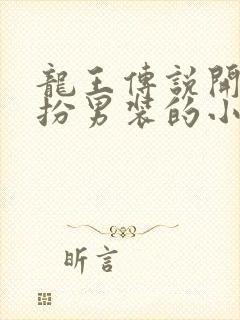 龍王傳説開
扮男裝的小
昕言